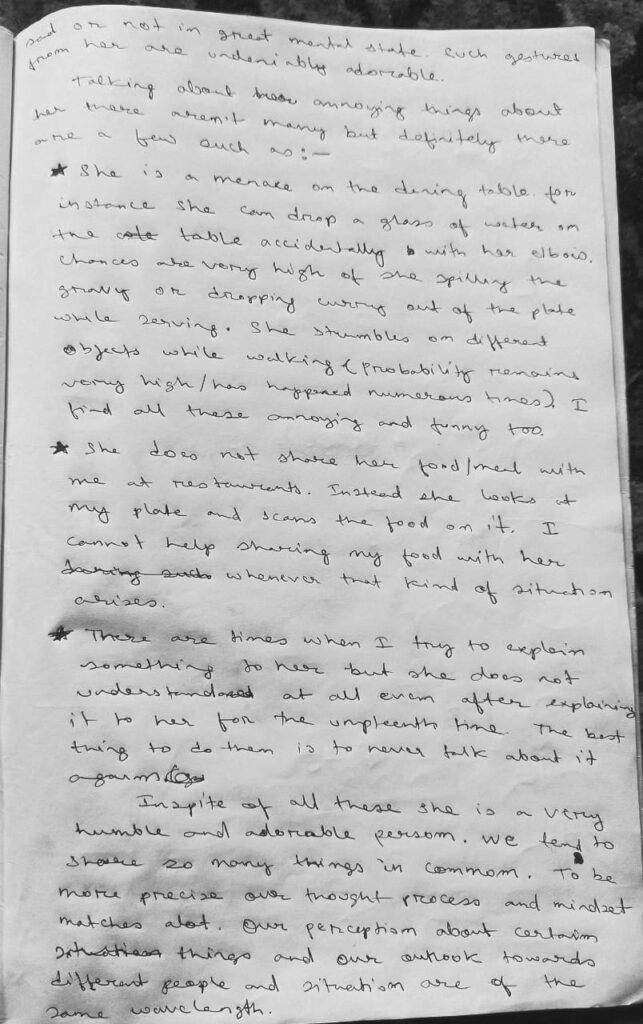 sad or not in great mental state. Such gestures
from her are undeniably adorable.
Talking about annoying things about
her there aren't many but definitely there
are a few such as:-
★ She is a menace on the dining table. for
instance she can drop a glass of water on
the table accidentally with her elbow.
Chances are very high of she spilling the
gravy or dropping curry out of the plate
while serving. She stumbles on different
objects while walking (probability remains
very high/has happened numerous times). I
find all these annoying and funny too.
★ She does not share her food/meal with
me at restaurants. Instead she looks at
my plate and scans the food on it. I
cannot help sharing my food with her
whenever that kind of situation
arises.
★ There are times when I try to explain
something to her but she does not
understand at all even after explaining
it to her for the umpteenth time. The best
thing to do then is to never talk about it
again
Inspite of all these she is a very
humble and adorable person. We tend to
share so many things in common. To be
more precise our thought process and mindset
matches alot. Our perception about certain
things and our outlook towards
different people and situation are of the
same wavelength.